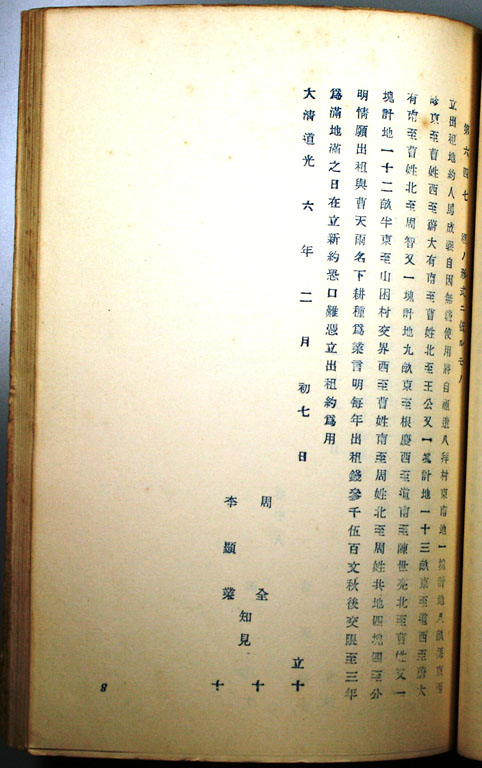 第六四七
立出租地約人馬成
畛東至曹姓西至蔚大有南至曹姓北至王公又一塊計地一十三畝東至道西至蔚大
有南至曹姓北至周智又一塊計地九畝東至根慶西至道南至陳世亮北至曹姓又一
塊計地一十二畝半東至山因村交界西至曹姓南至周姓北至周姓共地四塊四至公
明情願出租與曹天雨名下耕種爲業言明每年出租錢參千伍百文秋後交限至三年
爲滿地滿之日在立新約恐口難憑立出租約爲用
大清道光六年二月初七日
立十
周全
知見
十
李顯業
十
8